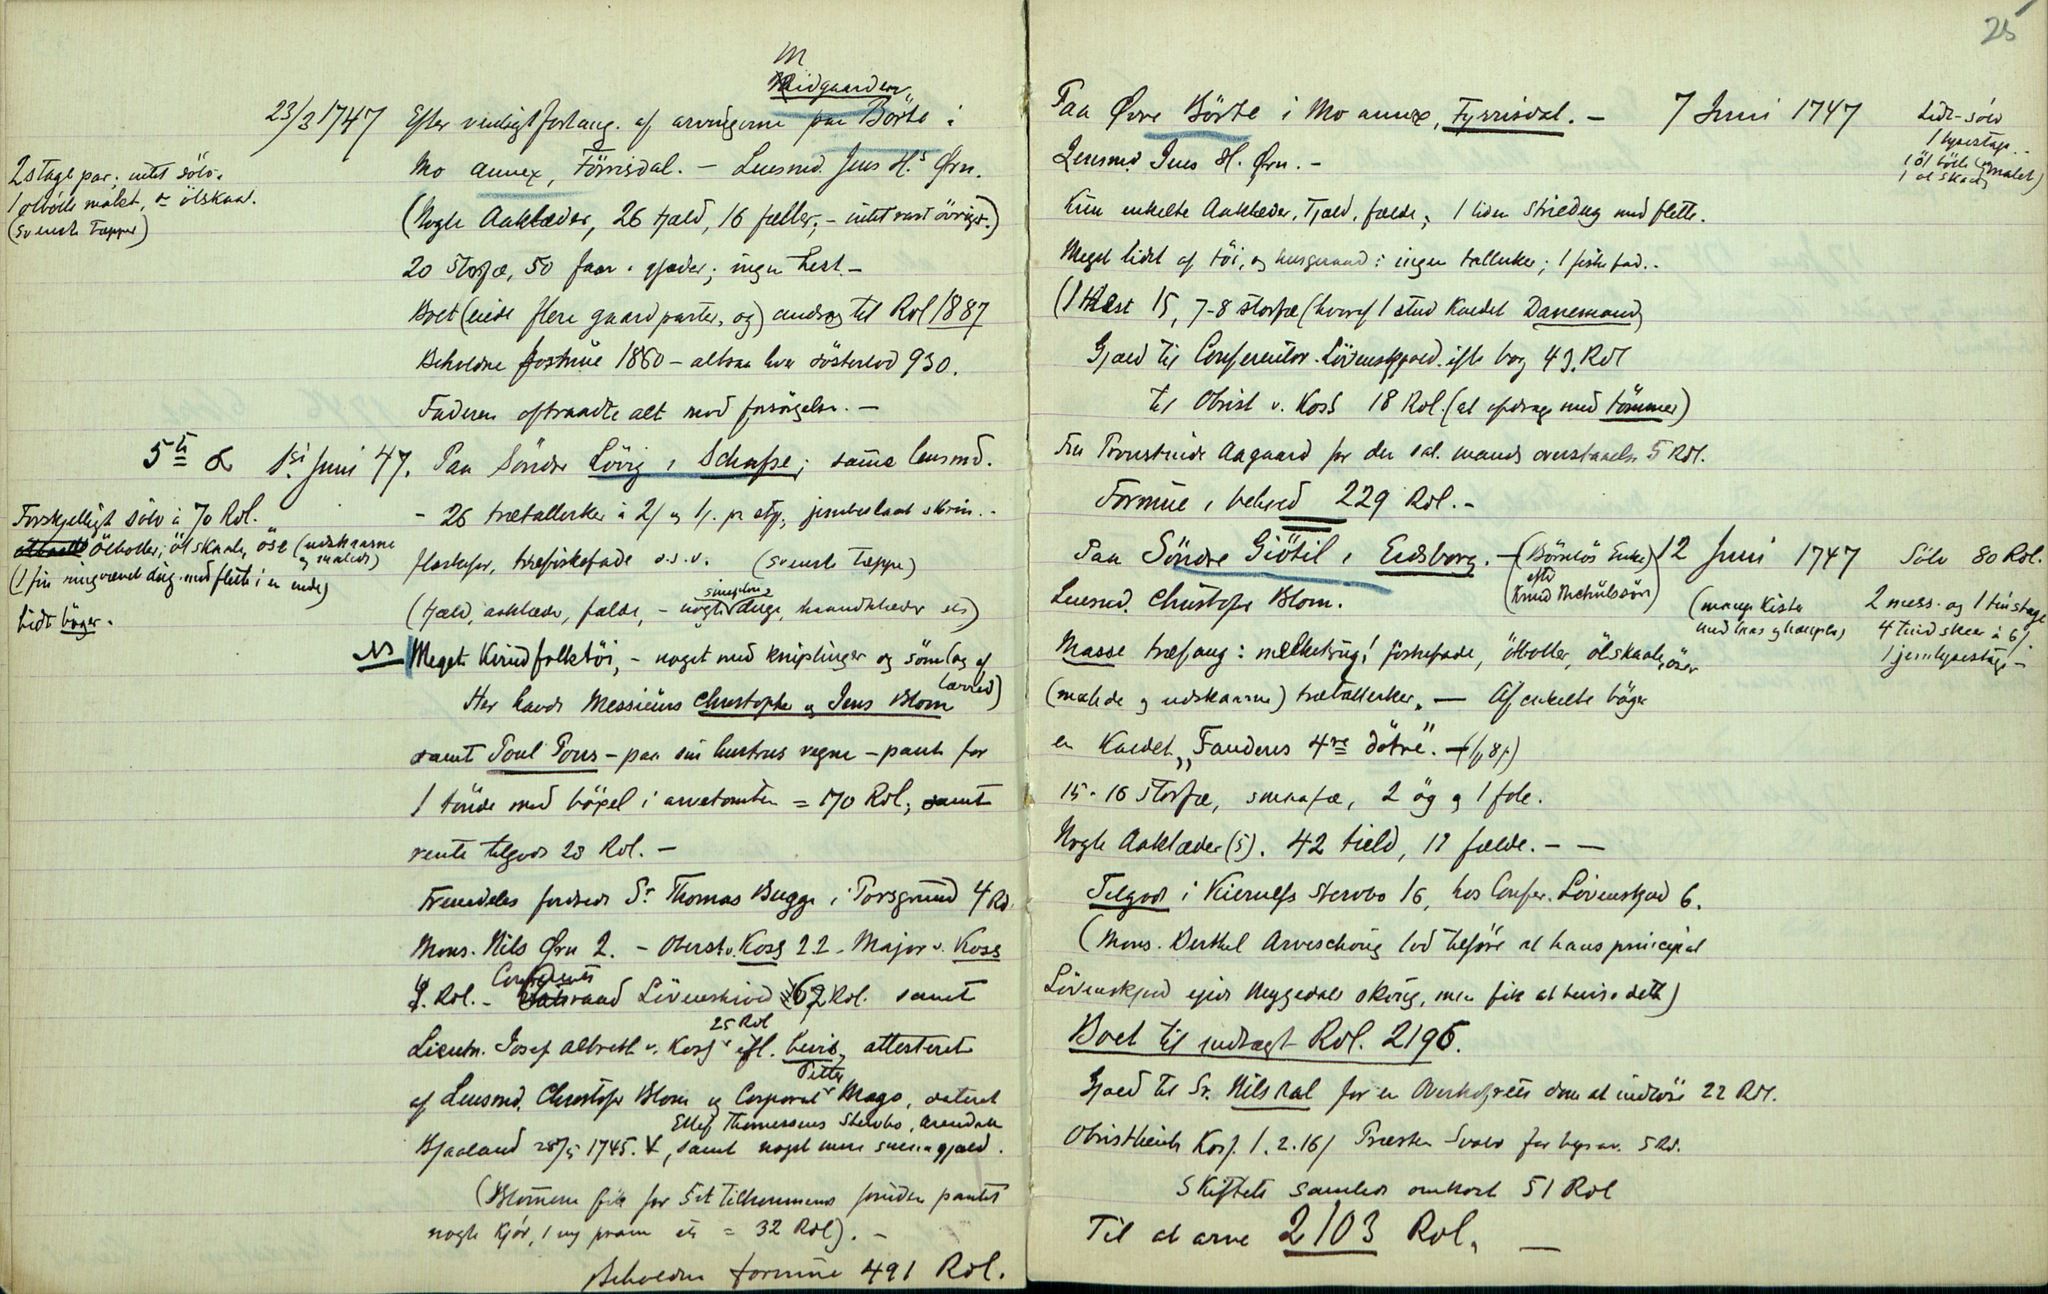 M
Midgaarden,
23/3 1747 Efter venligt forlang. af arvingerne paa Börte i
Mo annex, Förrisdal. — Lensmd. Jens H.s Ørn.
2 stage par; intet sölv.
1 ölbolle malet, 2 ölskaal.
(Svensk Tæppe)
(Nogle Aaklæder, 26 tjæld, 16 fæller; – intet rart övrigt.)
20 Storfæ, 50 faar & gjeder; ingen hest. –
Boet (eiede flere gaardparter, og) androg til Rdl 1887
Beholdne formue 1860 – altsaa hver søsterlod 930.
Faderen afstaaede alt mod forsörgelse. —
5te & Juni 47. Paa Söndre Lövig i Schafse; samme lensmd.
Forskjelligt sölv à 70 Rdl.
ölboller, ölskaale, öse (udskaarne og malede)
(1 fin ringvævet dug med flette i en ende)
Lidt böger.
– 26 trætallerker à 2/ og 1/. pr sty., jernbeslaat skrin. –
flaskefor, træfiskefade o.s.v. (Svensk Tæppe)
(tjæld, aaklæde, fælde, – nogle simplere duge, haandklæder etc)
NB Meget Kvindfolktöi, – noget med kniplinger og söm (og af lærred)
Her havde Messieurs Christopher og Jens Blom
samt Poul Povs – paa sin hustrus vegne – pant for
1 tönde med böxel i arvetomten = 170 Rdl; samt
rente tilgode 28 Rdl. —
Fremdeles fordrede Sr. Thomas Bugge i Porsgrund 4 Rd.
Mons. Nils Ørn 2. – Oberst v. Koss 22 – Major v. Koss
9. Rdl. – Conferents raad Lövenskiold 62 Rdl. samt
Lieutn. Josef Albrett v. Koss 25 Rdl efl. bevis, attesteret
af Lensmd. Christofer Blom og Corporal Petter Mago, dateret
Bjaaland 28/5 1745. V, samt noget mere smaagjæld.
Ellef Thomessens Sterbo, Arendal
(Blommene fik for det tilkommende foruden pantet
nogle Kjör, 1 ny pram etc = 32 Rdl). –
Beholden formue 491 Rdl.
25
Paa Øvre Börte i Mo annex, Fyrrisdal. – 7 Juni 1747
Lidt sölv
1 lysestage. –
1 öl bolle (malet)
1 öl skaal
Lensmd. Jens H. Ørn. –
Kun enkelte Aaklæder, Tjæld, fælde; 1 liden Striedug med flette.
Meget lidet af töi, og husgeraad: ingen tallerker; 1 fiskefad. –
(1 Hest 15, 7-8 storfæ (hvoraf 1 stud kaldet Danemand)
Gjæld til Conferentsr. Lövenskjold. efter bog 43. Rdl
til Obrist v. Koss 18 Rdl. (at afdrage med tömmer)
Fru Provstinde Aagaard for den sal. mands 5 Rdl.
Formue i behold 229 Rdl. –
Paa Söndre Giötil i Eidsborg. – (Börnlös Enke efter Knud Kietilssön) 12 Juni 1747 Sölv 80 Rdl.
Lensmd. Christofer Blom. (mange Kister med laas og hængsler)
2 mess. og 1 tinstage
4 tindskeer à 6/.
1 jernlysestage –
Masse træfang: melketrug! fiskefade, ölboller, ölskaale, öser
(malede og udskaarne) trætallerker. — Af enkelte böger
en kaldet „Fanderes 4re dötre". – (1/ 8/)
15-16 storfæ, smaafæ, 2 ög og 1 fole.
Nogle Aaklæder (5). 42 tield, 17 fælde. – —
Tilgode i Kierulfs Sterbo 16, hos Confer. Lövenskjold 6.
(Mons. Berthel Arveschoug lod tilföre at hans principal
Lövenskjold ejede Nyggedals skovg, men fik at bevise dette)
Boet til indtægt Rdl. 2196.
Gjæld til Sr. Nils Aal for en Overhofrets dom at indlöse 22 Rdl.
Obristlieutn Kosf. 1. 2. 16/ Præsten for 5 Rd.
Skiftets samlede omkost 51 Rdl
Til at arve 2103 Rdl. —